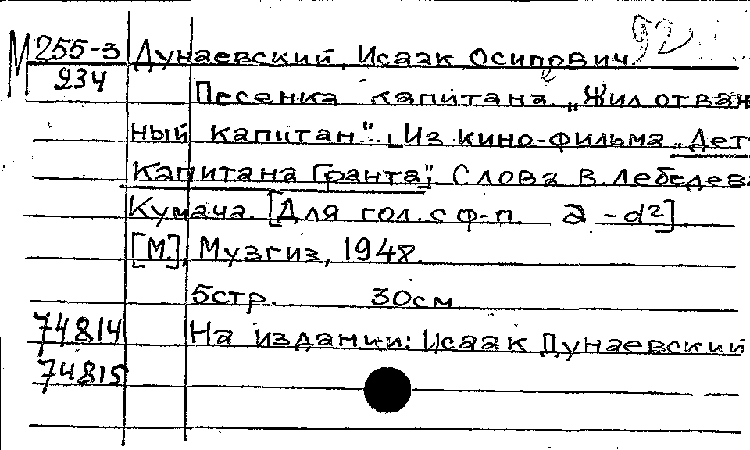 М 255-3 Дунаевский, Исаак Осипович. 92
934 Песенка капитана „Жил отваж
ный капитан". [Из кино-фильма „Дет
Капитана Гранта", Слова В. Лебедев
Кумача. [Для гол. с ф-п. а - d²]
[М.], Музгиз, 1948.
5стр. 30см
74814 На издании: Исаак Дунаевский
74815